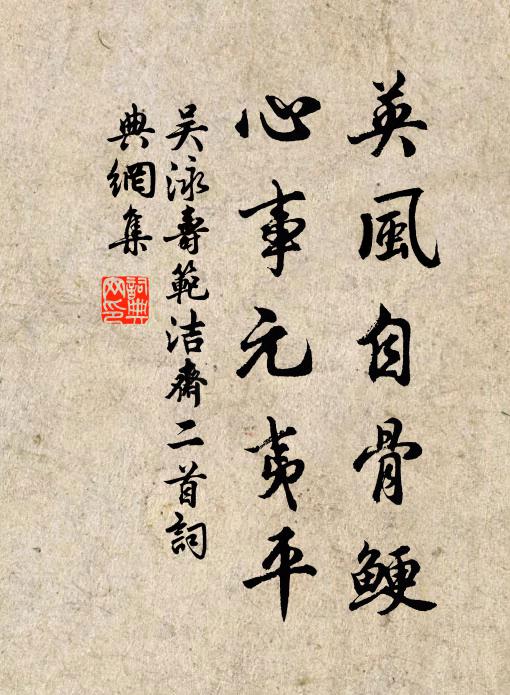 英風自骨鯁
心事元夷平
吴泳壽範洁齋二首詞
典網集
詞典网印